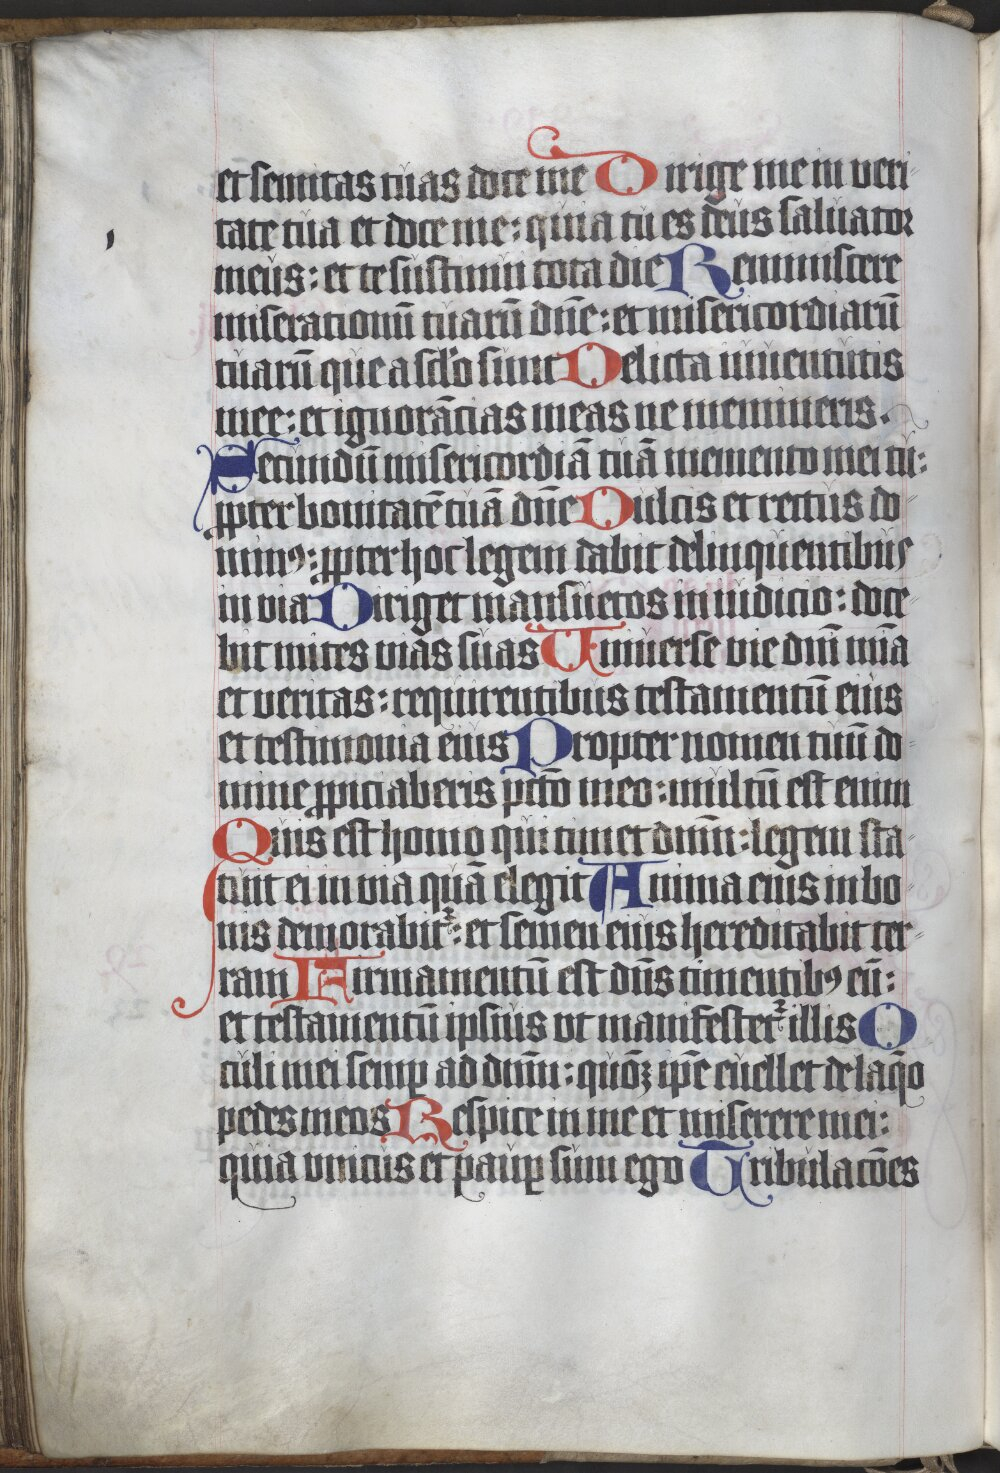 et semitas tuas doce me Dirige me in veri-
tate tua et doce me: quia tu es deus saluator
meus: et te sustinui tota die Reminiscere
miserationū tuarū dn̄e: et misericordiarū
tuarū que a sclo sunt Delicta iuuentutis
mee: et ignorāciās meas ne memineris.
Secundū misericordiā tuā memento mei tu:
ꝓpter bonitatē tuā dn̄e Dulcis et rectus do-
minꝰ: ꝓpter hoc legem dabit delinquentibus
in via Diriget mansuetos in iudicio: doce-
bit mites vias suas Uniuerse vie dn̄i mīa
et veritas: requirentibus testamentū eius
et testimonia eius Propter nomen tuū do-
mine ꝓpiciaberis pctō meo: multū est enim
Quis est homo qui timet dn̄m: legem sta-
tuit ei in via quā elegit Anima eius in bo-
nis demorabit᷑: et semen eius hereditabit ter-
ram Firmamentū est dn̄s timentibꝰ eū:
et testamentū ipsius vt manifestet᷑ illis O
culi mei semꝑ ad dn̄m: quōꝫ ip̄e euellet de laq̄o
pedes meos Respice in me et miserere mei:
quia vnicus et pauꝑ sum ego Tribulacōes